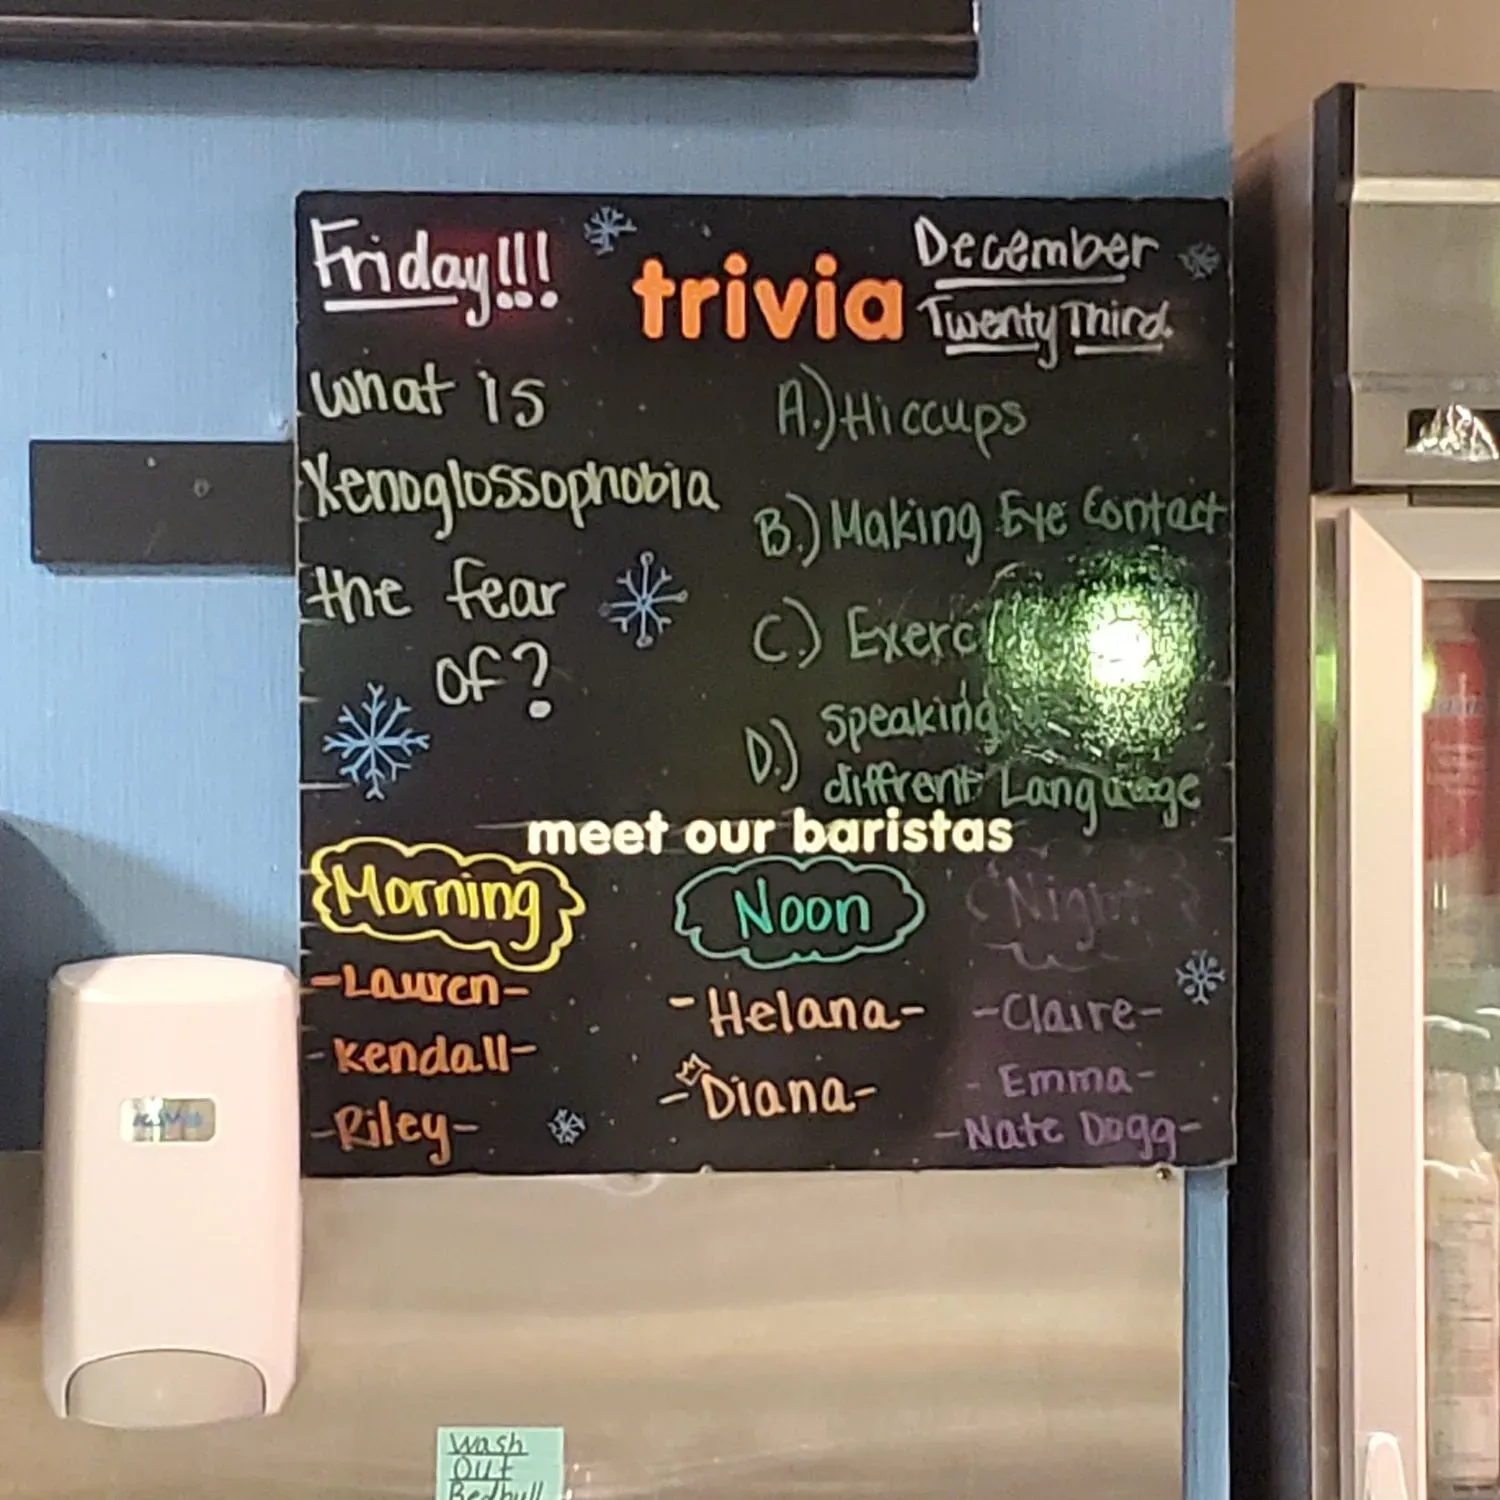 Friday!!!
trivia
December
Twenty Third.
What is
Xenoglossophobia
the fear
of?
A.) Hiccups
B.) Making Eye Contact
C.)
D.) speaking
diffrent Language
meet our baristas
Morning
-Lauren-
-Kendall-
-Riley-
Noon
-Helana-
-Diana-
Night
-Claire-
- Emma-
-Nate Dogg-
Wash
Out
Redbull